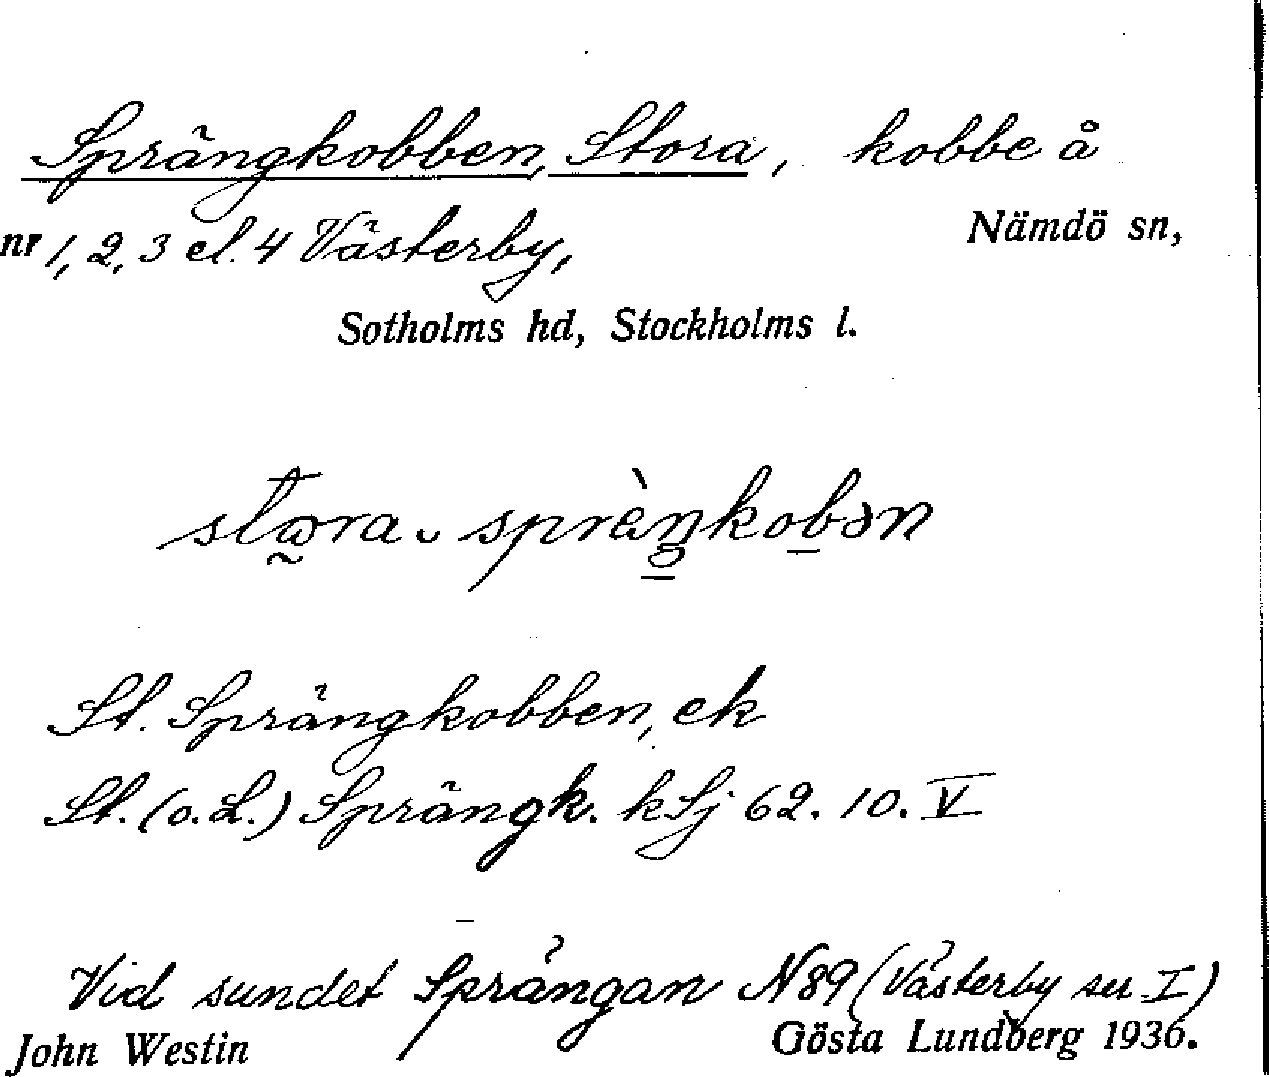 Sprängkobben, Stora, kobbe å
nr 1, 2, 3 el. 4 Västerby, Nämdö sn,
Sotholms hd, Stockholms l.
St. Sprängkobben, ek
St. (o. L.) Sprängk. kSj 62. 10. V
Vid sundet Sprängan N 89 (Västerby su I)
John Westin Gösta Lundberg 1936.